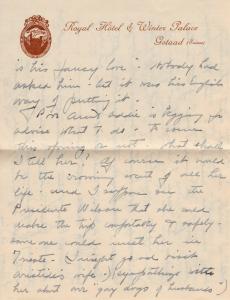 Royal Hôtel & Winter Palace
Gstaad (Suisse)
is his fancy love". Nobody had
asked him - but it was his English
way of putting it.
Poor Aunt Addie is begging for
advise what to do. To come
this spring or not. What shall
I tell her? Of course it would
be the crowning event of all her
life - and I suppose on the
Presidente Wilson that she could
make the trip comfortably & safely -
some one could meet her in
Trieste - I might go and visit
wife - & sympathize with
her about our "gay dogs of husbands"